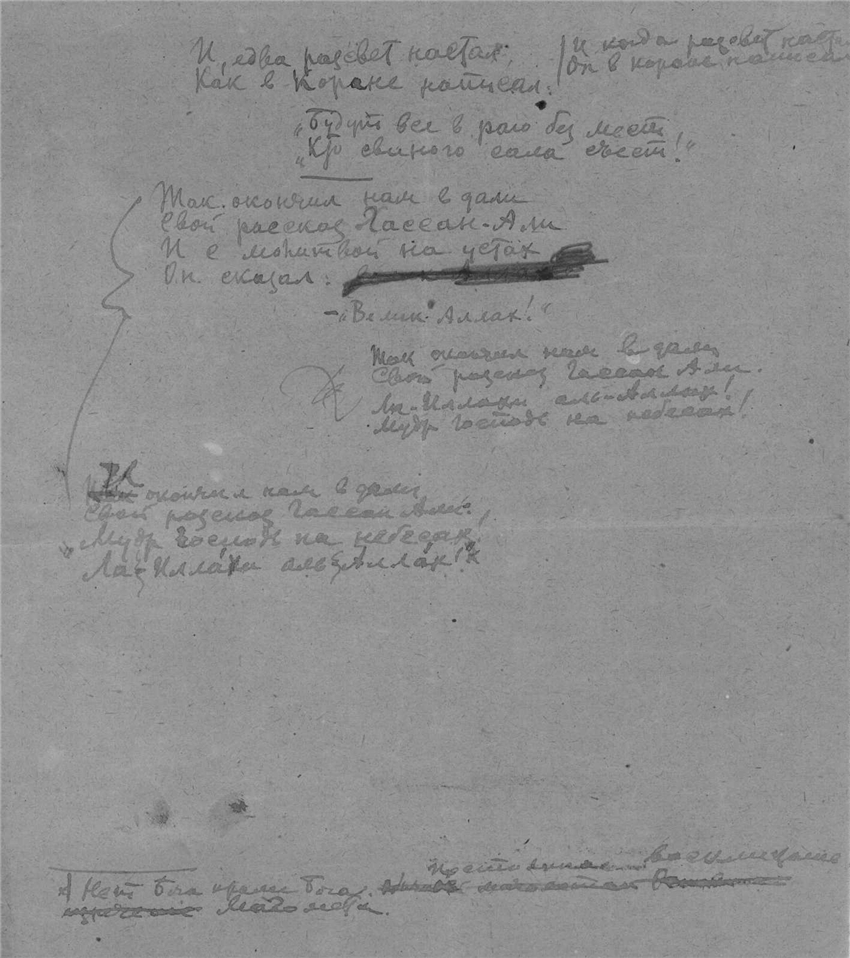 И, едва разсвет настал,
Как в Коране написал:
И когда разсвет настал
Он в коране написал
„Будут все в раю без мест,
„Кто свиного сала съест!"
Так окончил нам в дали
Свой рассказ Гассан-Али
И с молитвой на устах
Он сказал:
—„Велик Аллах!"
Так окончил нам в дали
Свой разсказ Гассан Али.
Ля-Иллахи аль-Аллах!
Мудр Господь на небесах!
И окончил нам в дали
Свой разсказ Гассан Али.
„Мудр Господь на небесах,
Ла-Иллахи аль-Аллах!"х
постоянное восклицание
х) Нет Бога кроме Бога.
изречение Магомета.